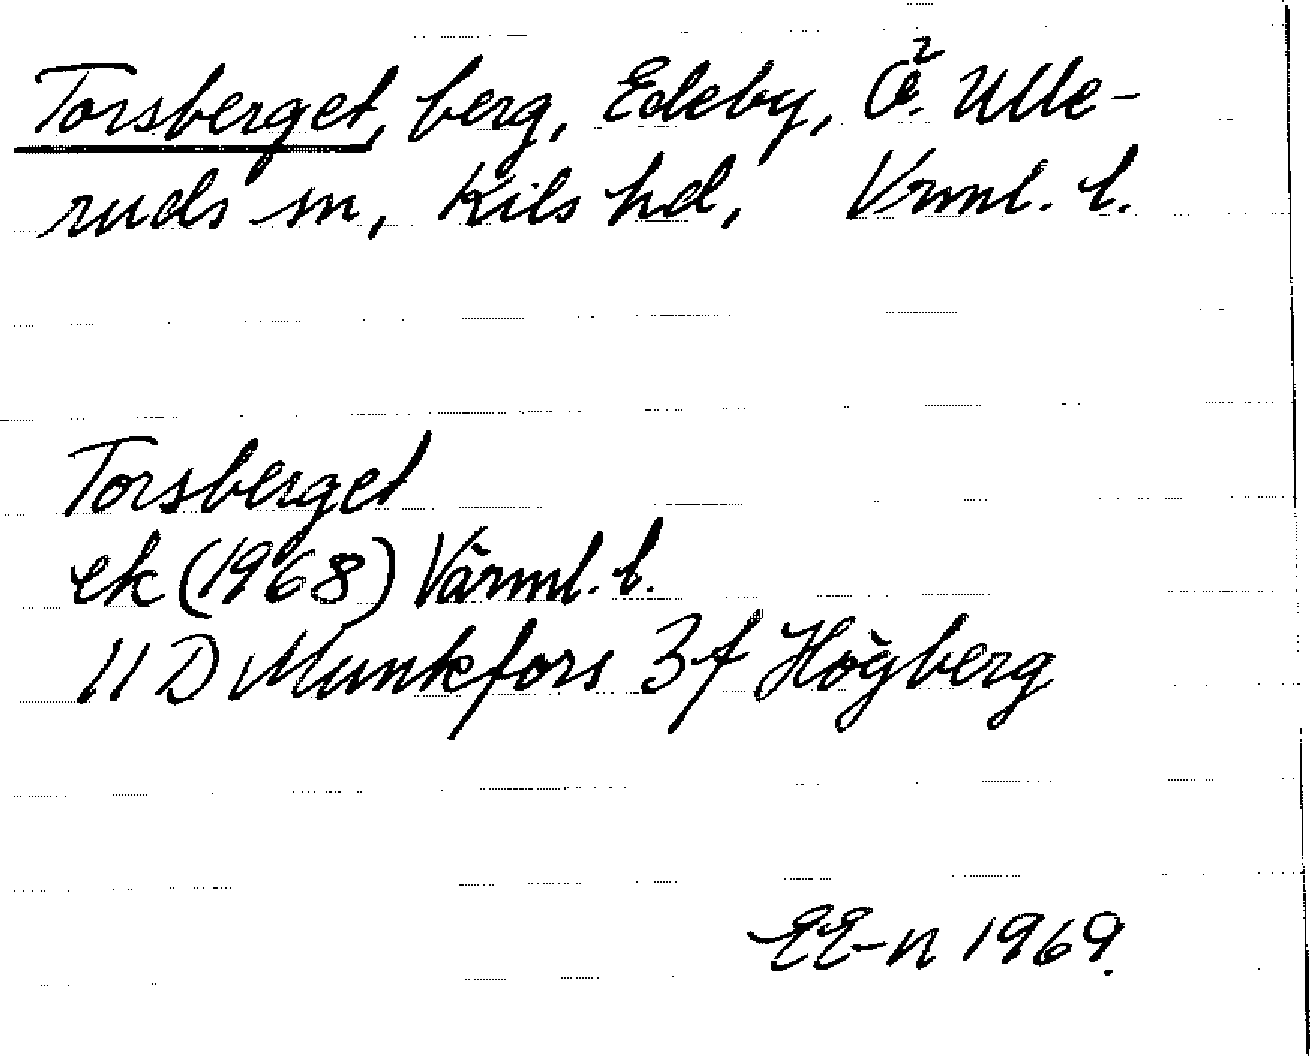 Torsberget, berg, Edeby, Ö. Ulle-
ruds sn, Kils hd, Vrml. l.
Torsberget
ek (1968) Värml. l.
11 D Munkfors 3f Högberg
EE-n 1969.